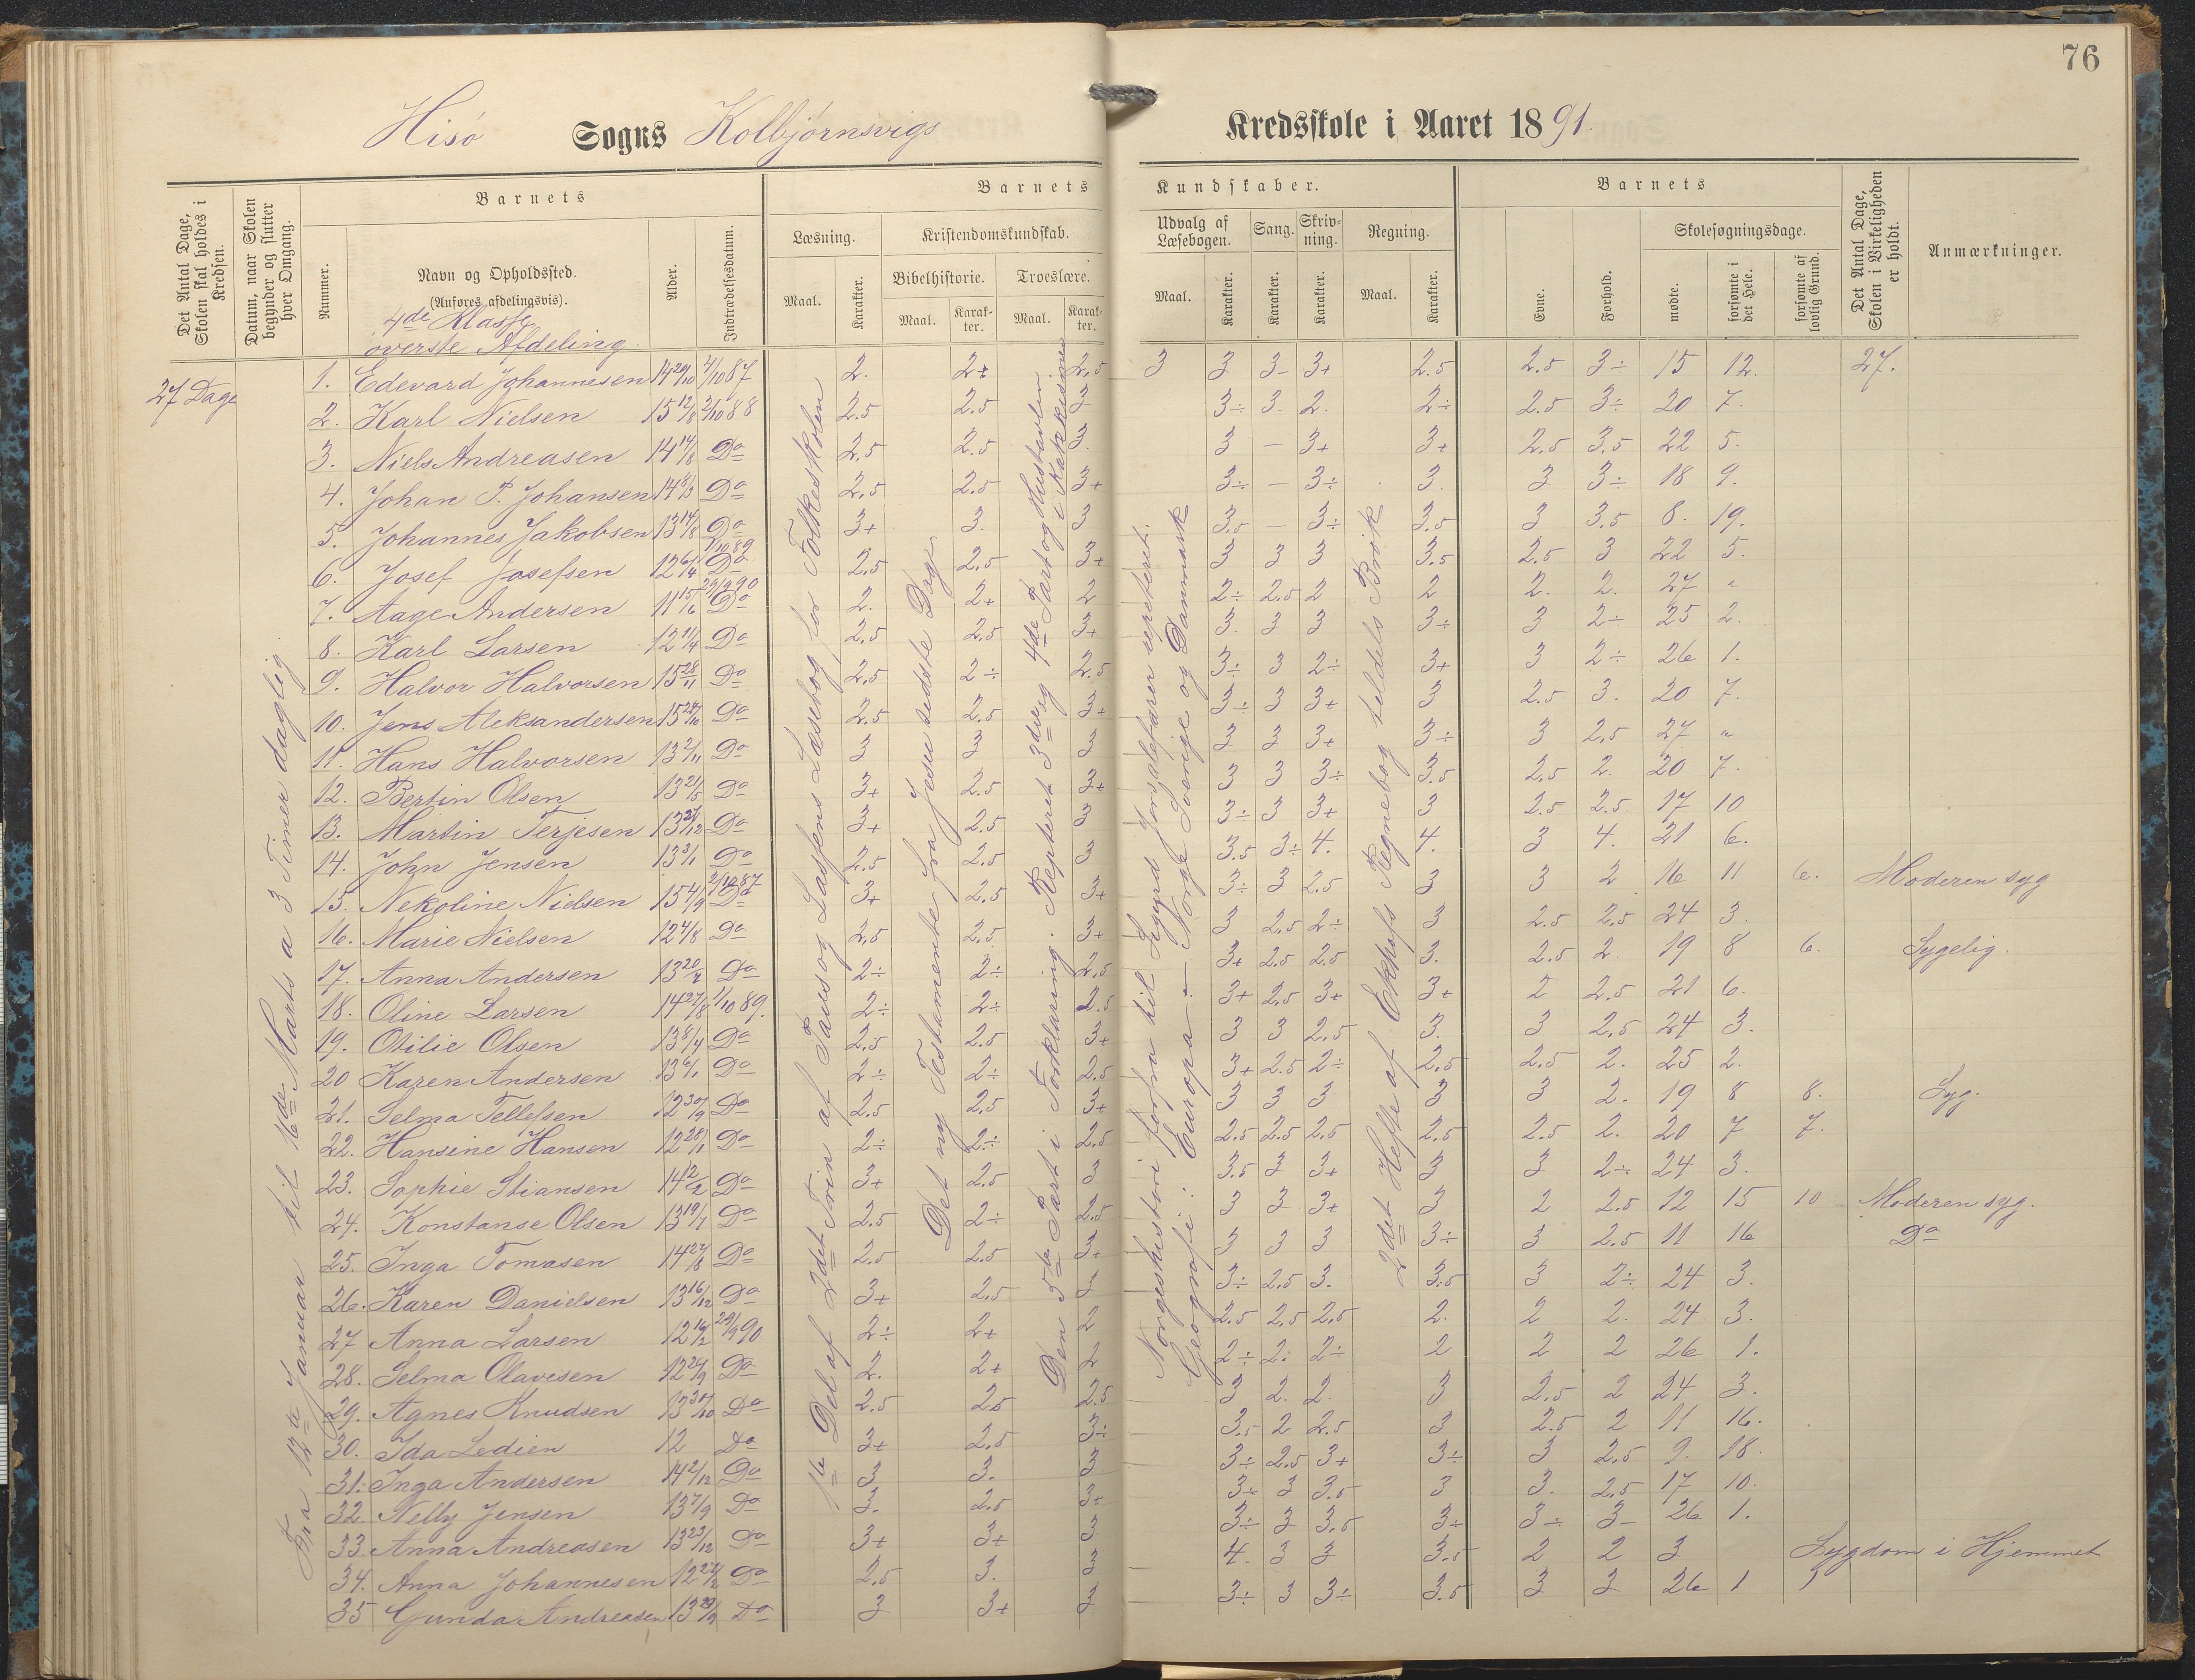 76
Hisø Sogns Kolbjørnsvigs Kredsskole i Aaret 1891.
Det Antal Dage, Skolen skal holdes i Kredsen.
Datum, naar Skolen begynder og slutter hver Omgang.
Barnets
Nummer.
Navn og Opholdssted.
(Anføres afdelingsvis).
4de Klasse
øverste Afdeling
Alder.
Indtrædelsesdatum.
Barnets Kundskaber.
Læsning.
Maal.
Karakter.
Kristendomskundskab.
Bibelhistorie.
Maal.
Karakter.
Troeslære.
Maal.
Karakter.
Udvalg af Læsebogen.
Maal.
Karakter.
Sang.
Karakter.
Skrivning.
Karakter.
Regning.
Maal.
Karakter.
Barnets
Evne.
Forhold.
Skolesøgningsdage.
mødte.
forsømte i det Hele.
forsømte af lovlig Grund.
Det Antal Dage, Skolen i Virkeligheden er holdt.
Anmærkninger.
27 Dage
Fra 12te Januar til 16de Marts a 3 Timer daglig
1te Del af 2det Trin af Paus og Lassens Læsebog for Folkeskolen
Det ny Testamente fra Jesu sidste Dage
Den 5te Part i Forklaring. Repeteret 3die og 4de Part og Hustavlen i Katekismus
Norgeshistorie forfra til Sigurd Jorsalefarer repeteret.
Geografi: Europa - Norge Sverige og Danmark
2det Hefte af Ekhofs Regnebog tildels Brøk
1. Edevard Johannesen 14 20/10 4/10 87 2. 2+ 2.5 3 3 3- 3+ 2.5 2.5 3÷ 15 12. 27.
2. Karl Nielsen 15 12/8 2/10 88 2.5 2.5 3 3÷ 3. 2. 2÷ 2.5 3÷ 20 7.
3. Niels Andreasen 14 14/8 Do 2.5 2.5 3. 3 - 3+ 3+ 2.5 3.5 22 5.
4. Johan P. Johansen 14 8/3 Do 2.5 2.5 3+ 3÷ - 3÷ 3. 3 3÷ 18 9.
5. Johannes Jakobsen 13 14/8 Do 3+ 3. 3 3.5 - 3÷ 3.5 3 3.5 8. 19.
6. Josef Josefsen 12 6/4 1/10 89 Do 2.5 2.5 3+ 3 3 3 3.5 2.5 3 22 5.
7. Aage Andersen 11 15/6 29/9 90 Do 2. 2+ 2 2÷ 2.5 2 2 2. 2. 27 "
8. Karl Larsen 12 11/4 Do 2.5 2.5 3+ 3. 3 3 3÷ 3 2÷ 25 2.
9. Halvor Halvorsen 15 28/11 Do 2.5 2÷ 2.5 3÷ 3 2÷ 3+ 3 2÷ 26 1.
10. Jens Aleksandersen 15 24/10 Do 2.5 2.5 3+ 3÷ 3 3+ 3 2.5 3. 20 7.
11. Hans Halvorsen 13 2/11 Do 3 3 3 3 3 3+ 3÷ 3 2.5 27 "
12. Bertin Olsen 13 21/5 Do 3+ 2.5 3+ 3 3 3÷ 3.5 2.5 2. 20 7.
13. Martin Terjesen 13 27/12 Do 3+ 2.5 3 3÷ 3 3+ 3 2.5 2.5 17 10
14. John Jensen 13 3/1 Do 2.5 2.5 3 3.5 3÷ 4. 4. 3 4. 21 6.
15. Nekoline Nielsen 15 4/9 2/10 87 Do 3+ 2.5 3+ 3÷ 3 2.5 3 3 2 16 11 6. Moderen syg
16. Marie Nielsen 12 4/8 Do 2.5 2.5 3+ 3 2.5 2÷ 3 2.5 2.5 24 3.
17. Anna Andersen 13 20/4 Do 2÷ 2÷ 2.5 3+ 2.5 2.5 3. 2.5 2. 19 8 6. Sygelig.
18. Oline Larsen 14 27/8 1/10 89. 2÷ 2÷ 2.5 3+ 2.5 3+ 3+ 2 2.5 21 6.
19. Otilie Olsen 13 8/4 Do 2.5 2.5 3+ 3 3 2.5 3. 3 2.5 24 3.
20 Karen Andersen 13 6/1 Do 2÷ 2÷ 2.5 3+ 2.5 2÷ 2.5 2.5 2. 25 2.
21. Selma Tellefsen 12 30/9 Do 2.5 2.5 3+ 3 3 3 3 3 2. 19 8 8. Syg.
22. Hansine Hansen 12 28/11 Do 2÷ 2÷ 2.5 2.5 2.5 2.5 2.5 2.5 2. 20 7 7.
23. Sophie Stiansen 14 12/2 Do 3+ 2.5 3 3.5 3 3+ 3 3 2÷ 24 3.
24. Konstanse Olsen 13 19/7 Do 2.5 2÷ 2.5 3 3 3+ 3 2 2.5 12 15 10 Moderen syg.
25. Inga Tomasen 14 27/8 Do 2.5 2.5 3+ 3 3 3 3÷ 3 2.5 11 16 Do
26. Karen Danielsen 13 16/12 Do 3+ 2.5 3 3÷ 2.5 3. 3.5 3 2÷ 24 3.
27 Anna Larsen 12 16/2 29/9 90 2÷ 2+ 2 2.5 2.5 2.5 2. 2 2. 24 3.
28. Selma Olavesen 12 24/9 Do 2. 2+ 2 2÷ 2. 2÷ 2 2 2 26 1.
29. Agnes Knudsen 13 30/10 Do 2.5 2.5 2.5 3 2. 2. 3 2.5 2 24 3.
30. Ida Ledien 12 Do 3+ 2.5 3÷ 3.5 2 2.5 3 2.5 2 11 16.
31. Inga Andersen 14 2/12 Do 3 3. 3 3÷ 2.5 3+ 3÷ 3 2.5 9. 18.
32 Nelly Jensen 13 7/9 Do 3. 2.5 3+ 3+ 3 3.5 3 3. 2.5 17 10.
33 Anna Andreasen 13 23/12 Do 3+ 3+ 3 3÷ 3 3.5 3+ 3÷ 3- 26 1.
34. Anna Johannesen 12 27/2 Do 2.5 3. 3 4. 3 3 3.5 2 2 3 Sygdom i Hjemmet
35 Gunda Andreasen 13 29/9 Do 3 3+ 3 3÷ 3 3÷ 3.5 3 3 26 1